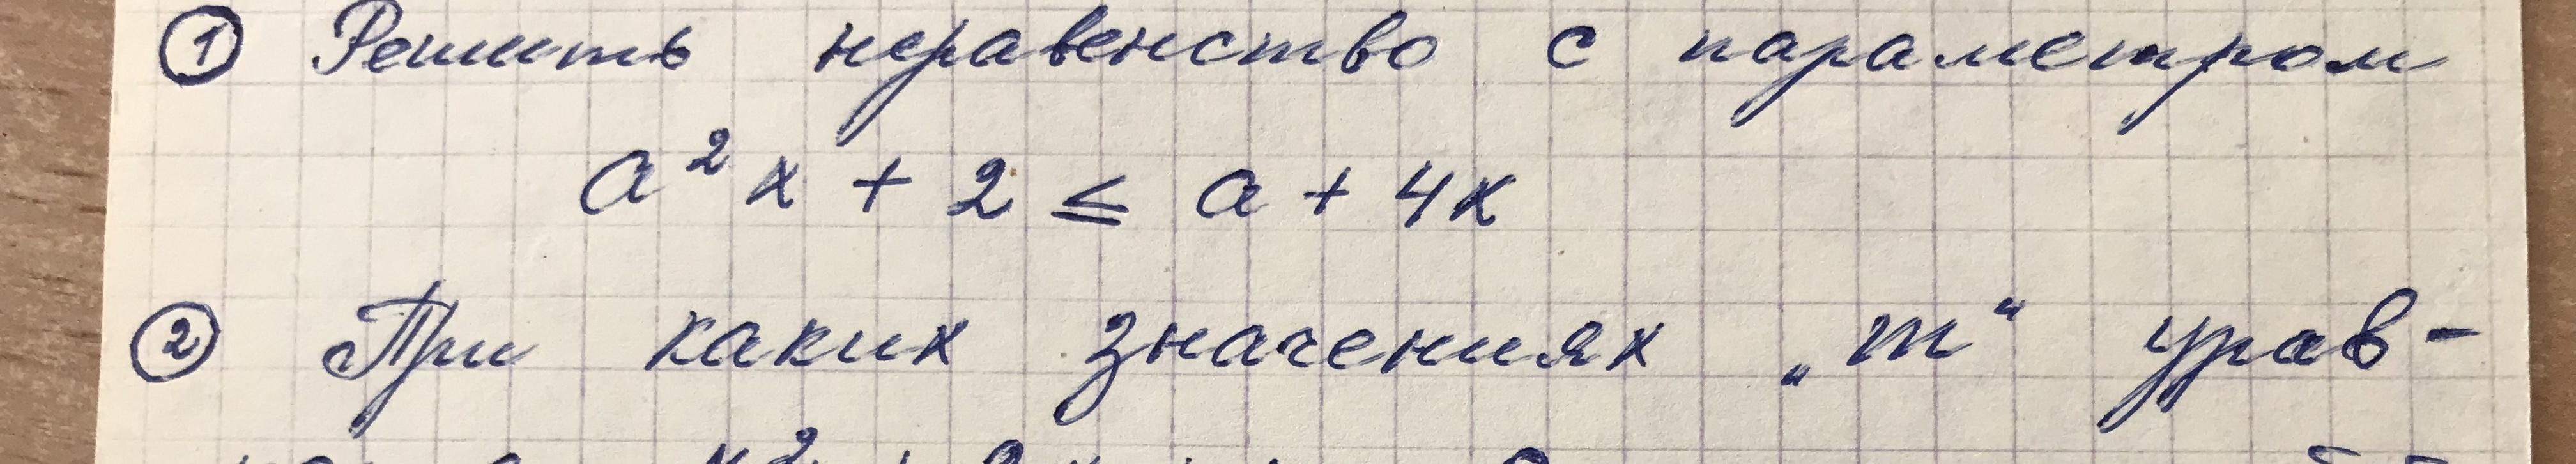 ① Решить неравенство с параметром
a² x + 2 ≤ a + 4x
② При каких значениях „m“ урав-